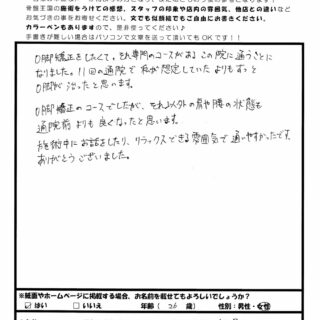 骨盤王国の施術をうけての感想、スタッフの印象や店内の雰囲気、他店との違いなど
お気づきの事をお書きください。文でも似顔絵でもご自由にお書きください。
カラーペンもありますので、是非使ってください♪
手書きが難しい場合はパソコンで文章を送って頂いてもOKです！！
O脚矯正をしたくて、それ専門のコースがあるこの院に通うことに
なりました。11回の通院で私が想定していたよりもずっと
O脚が治ったと思います。
O脚矯正のコースでしたが、それ以外の肩や腰の状態も
通院前よりも良くなったと思います。
施術中にお話をしたり、リラックスできる雰囲気で通いやすかったです。
ありがとうございました。
※紙面やホームページに掲載する場合、お名前を載せてもよろしいでしょうか？
☑はい □いいえ 年齢（ 26 歳） 性別：男性・女性